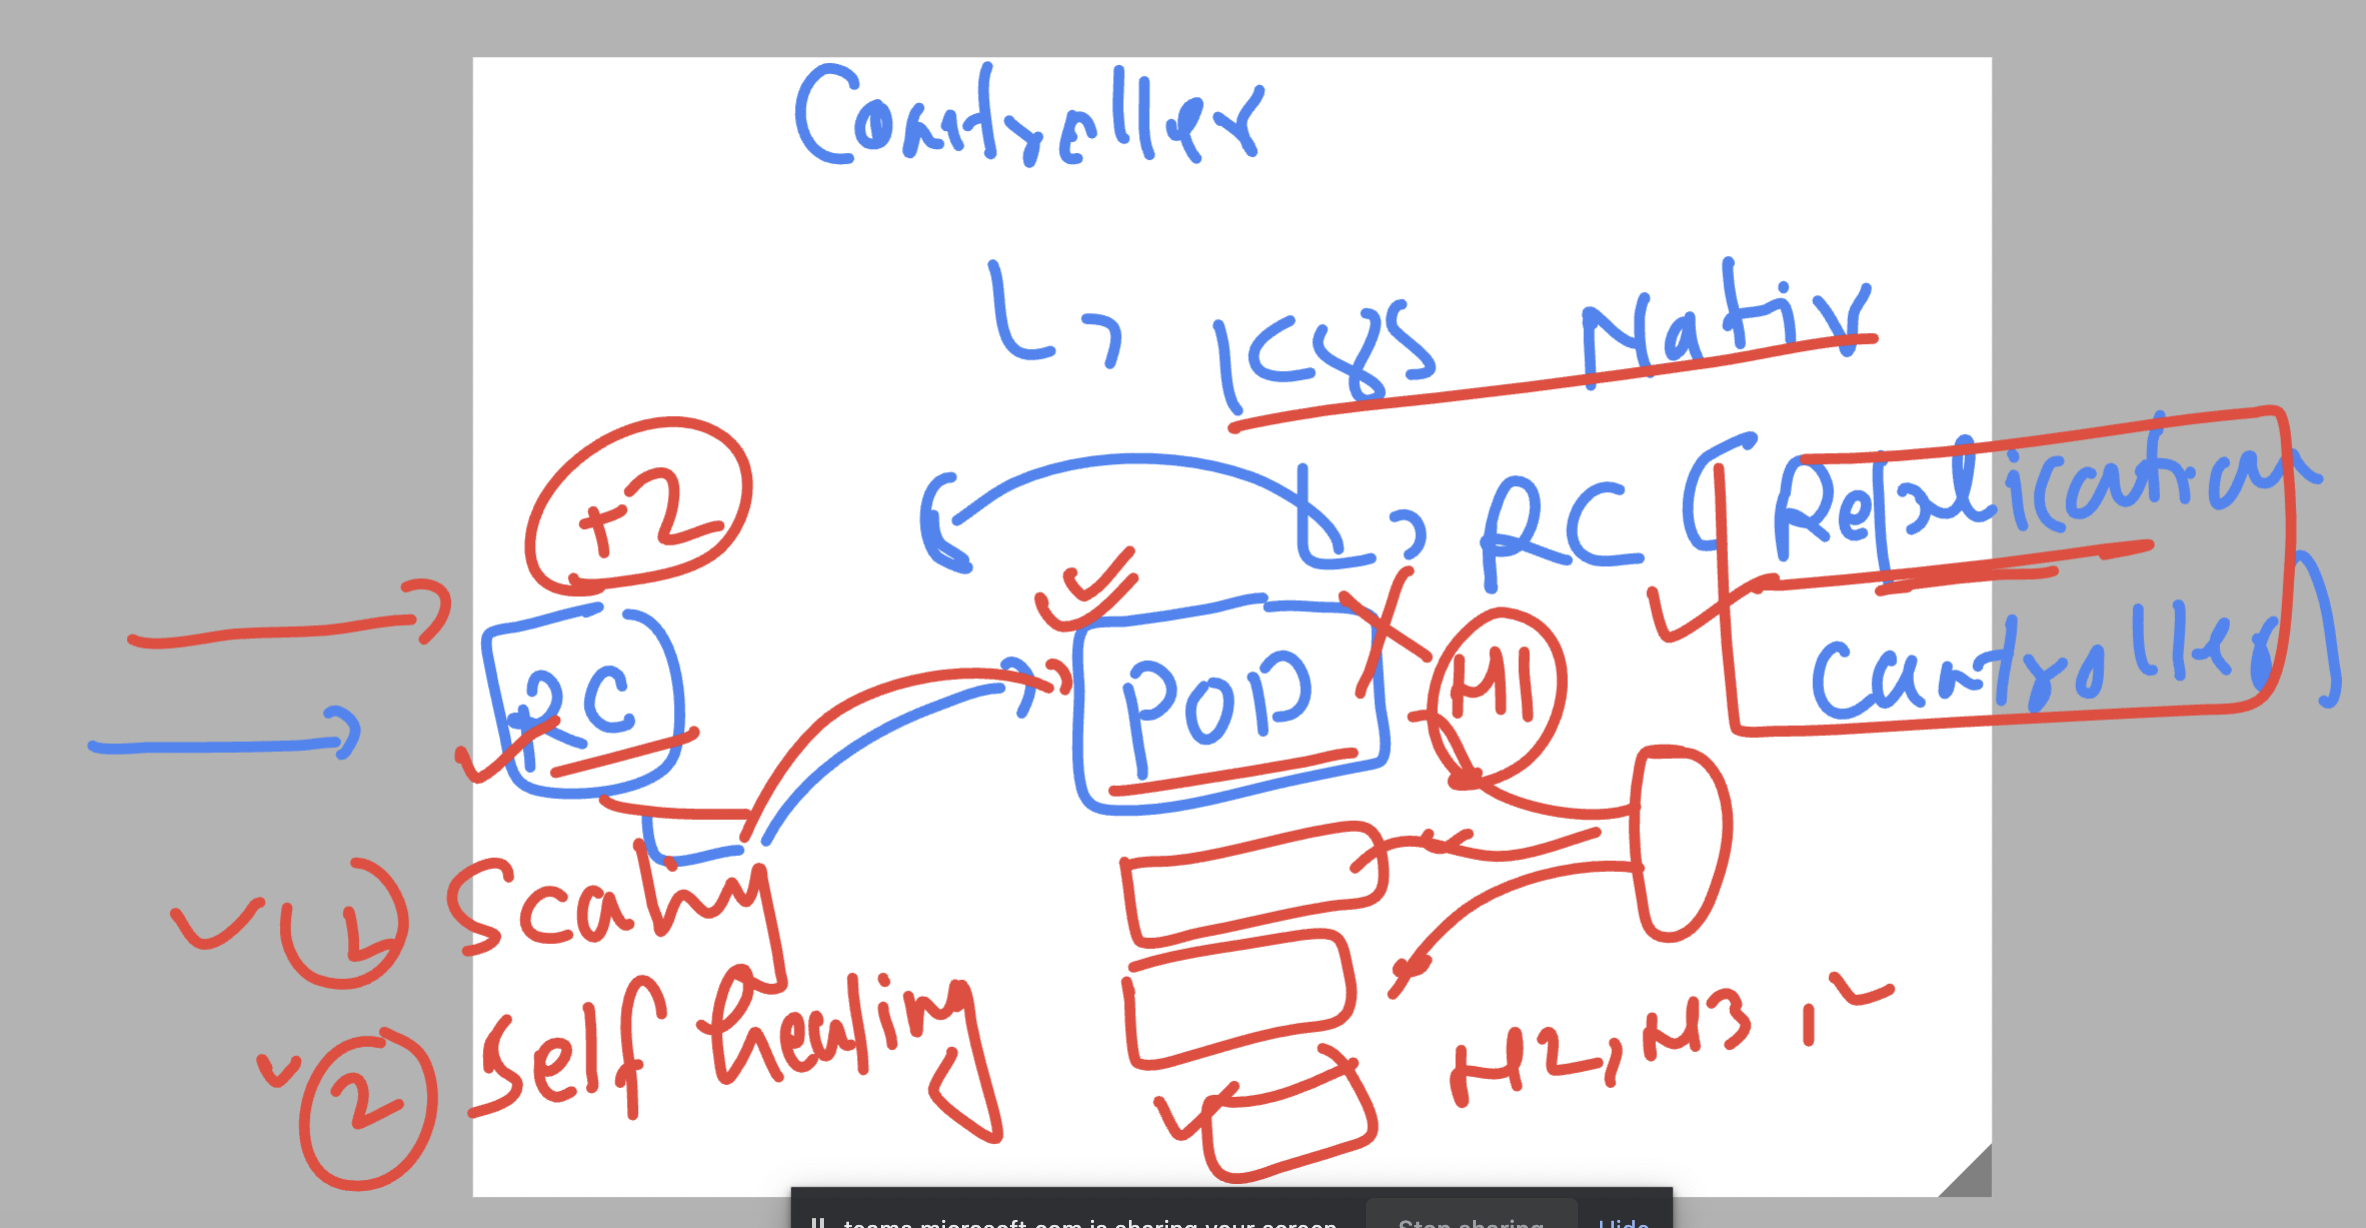 Controller
K8s Nativ
+2
RC (Replication
Controller)
RC
POD
M1
1 Scaling
2 Self healing
M2, M3,
teams.microsoft.com is sharing your screen. Stop sharing Hide